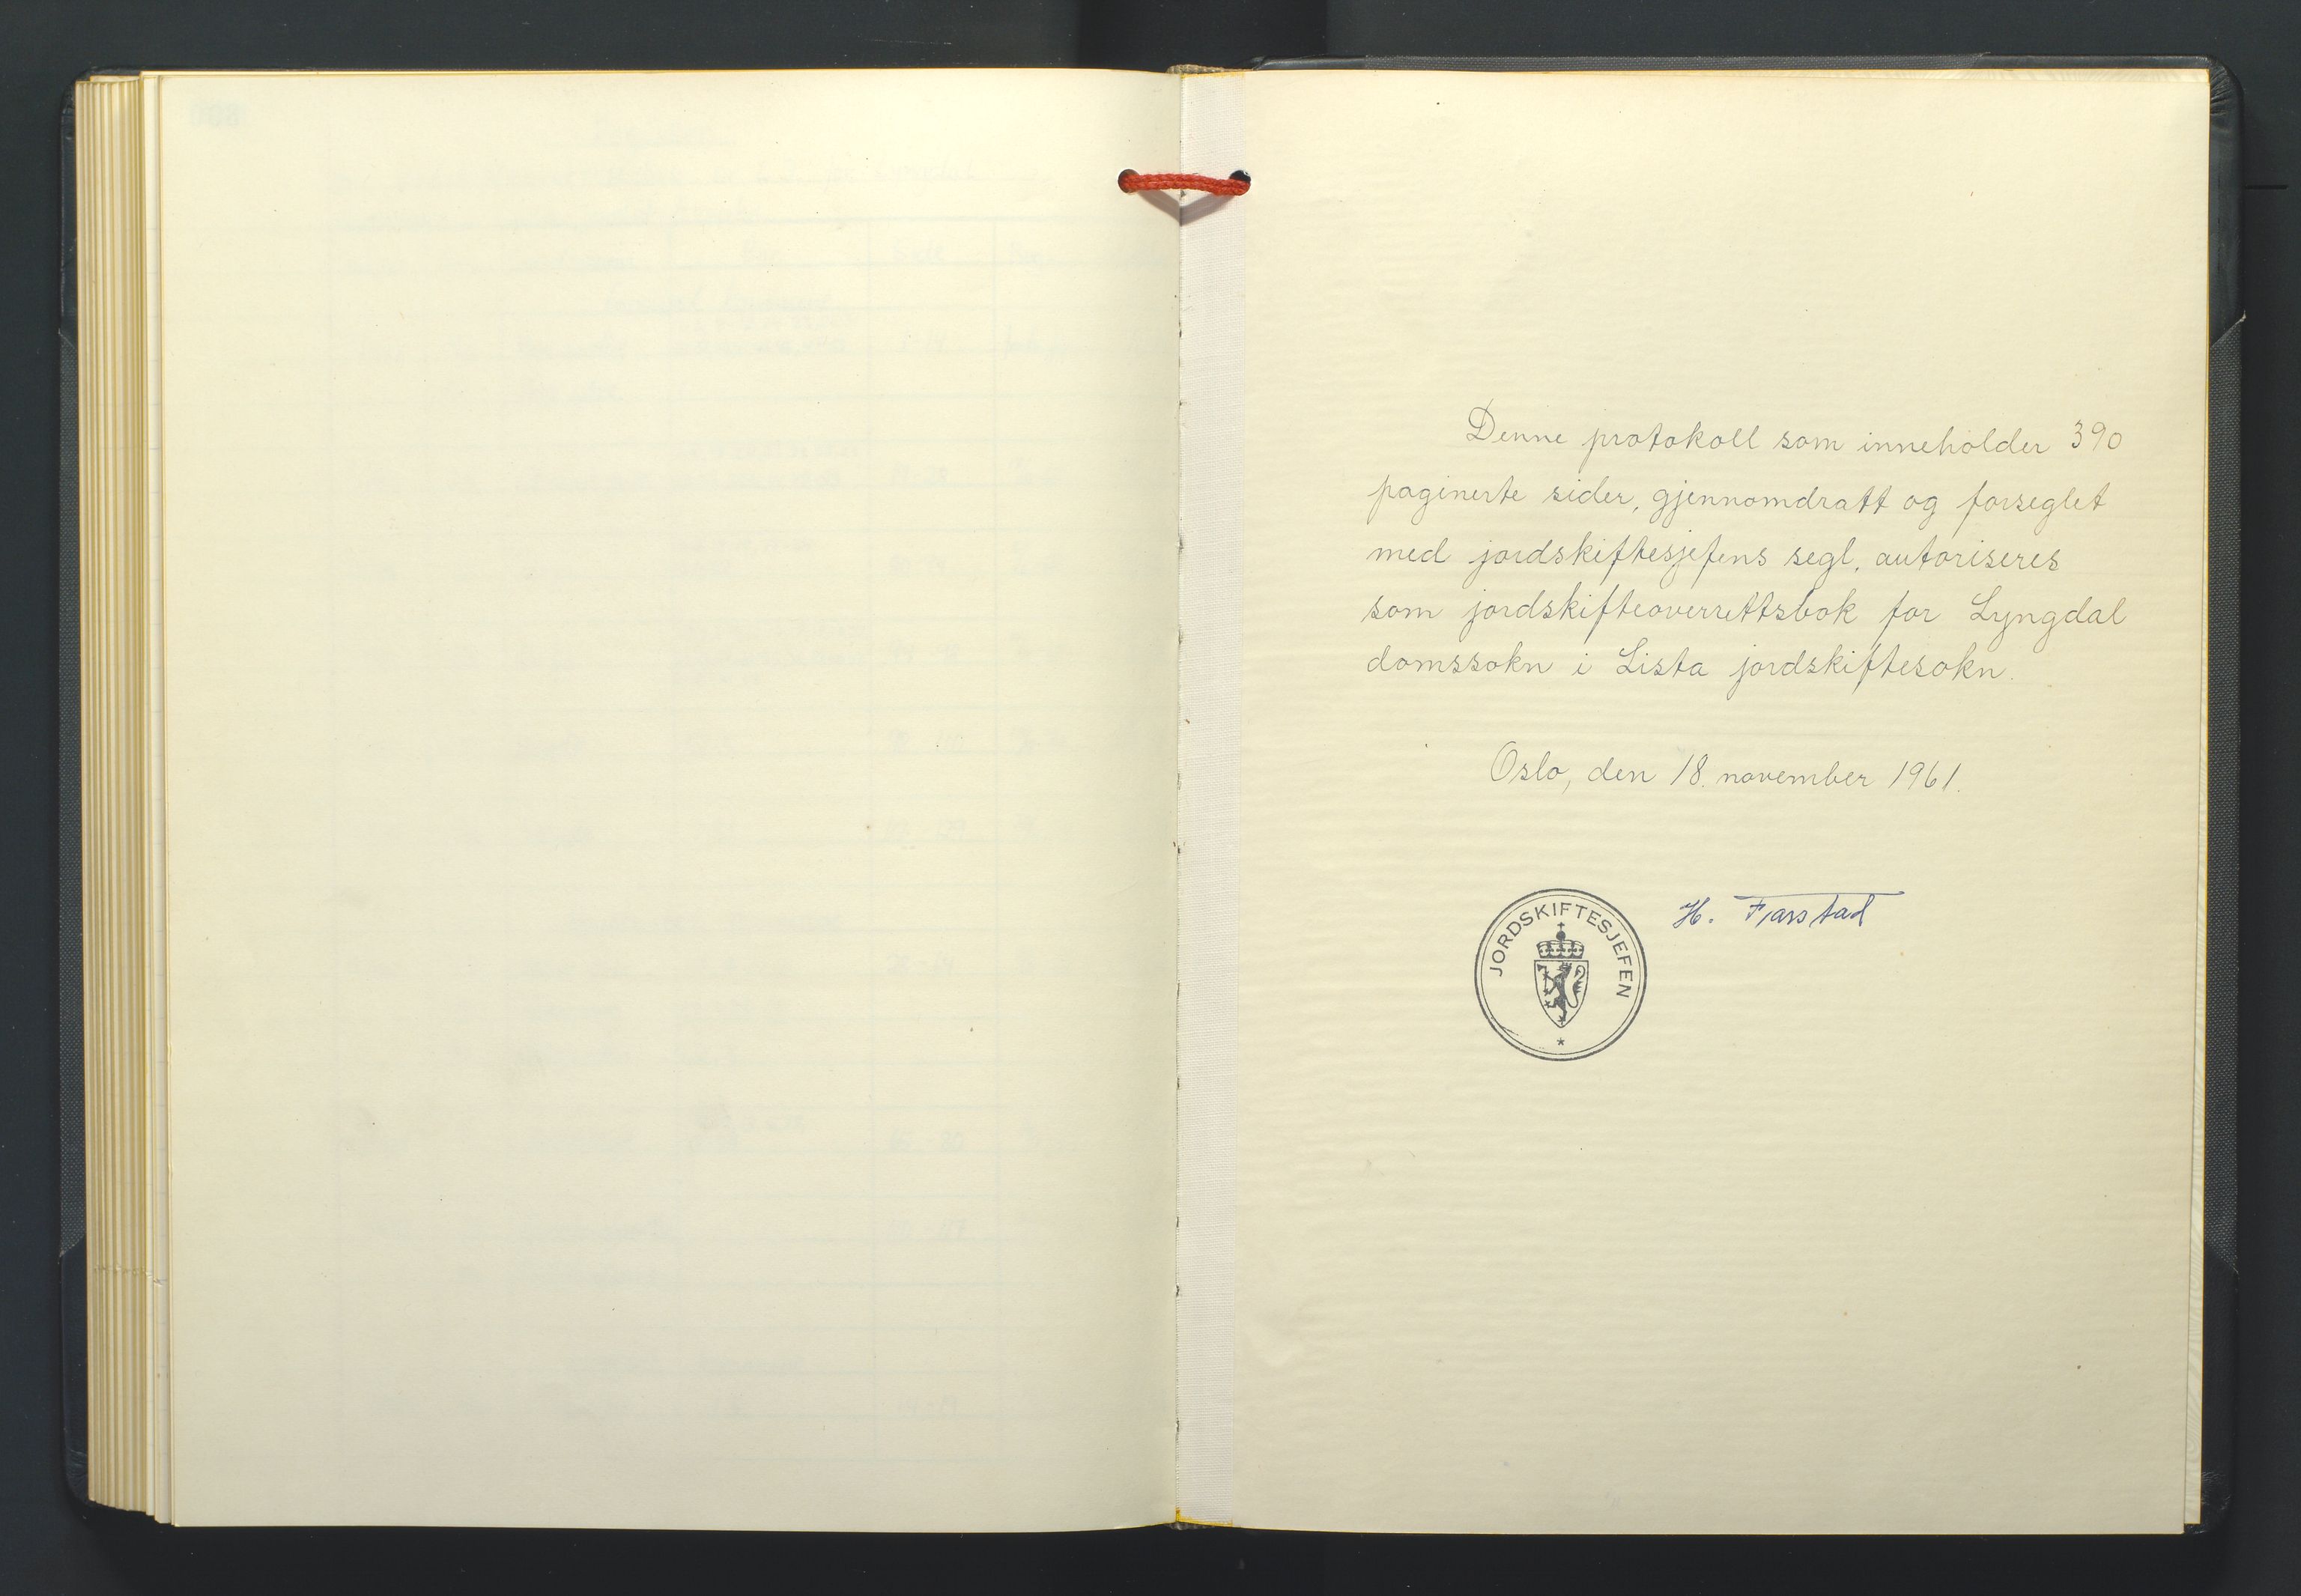 Denne protokoll som inneholder 390
paginerte sider, gjennomdratt og forseglet
med jordskiftesjefens segl, autoriseres
som jordskifteoverrettsbok for Lyngdal
domssokn i Lista jordskiftesokn.
Oslo, den 18. november 1961.
H. Farstad
JORDSKIFTESJEFEN